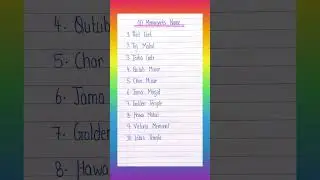 10 Monuments Name
1. Red Fort
2. Taj Mahal
3. India Gate
4. Qutub Minar
5. Char Minar
6. Jama Masjid
7. Golden Temple
8. Hawa Mahal
9. Victoria Memorial
10. Lotus Temple
4. Qutub
5. Char
6. Jama
7. Golden
8. Hawa